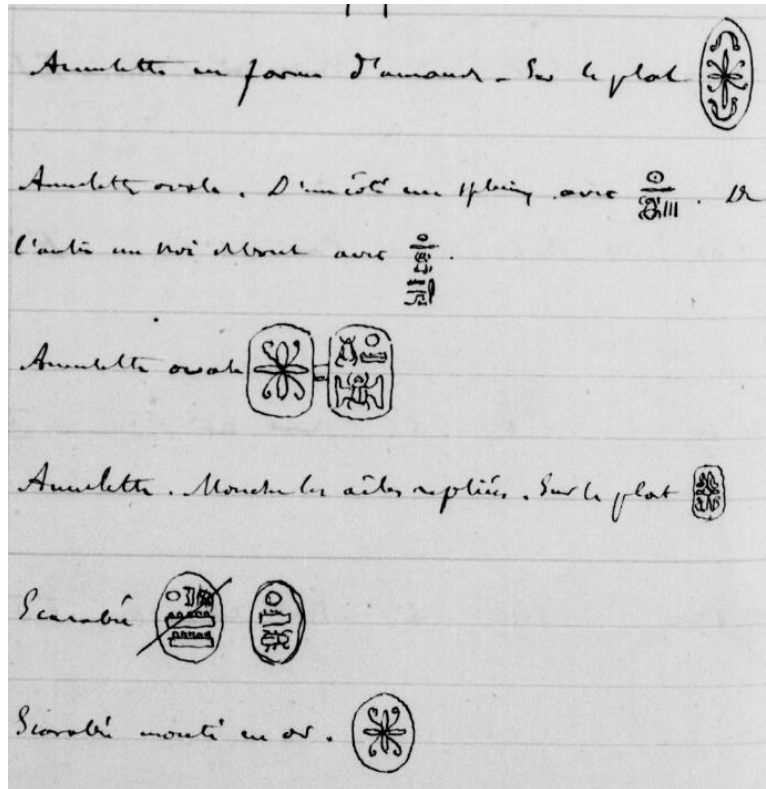 Amulette en forme d'amande - Sur le plat
Amulette ovale. D'un côté un sphinx avec . De
l'autre un roi debout avec .
Amulette ovale
Amulette. Mouche les ailes repliées. Sur le plat
Scarabée
Scarabée monté en or.